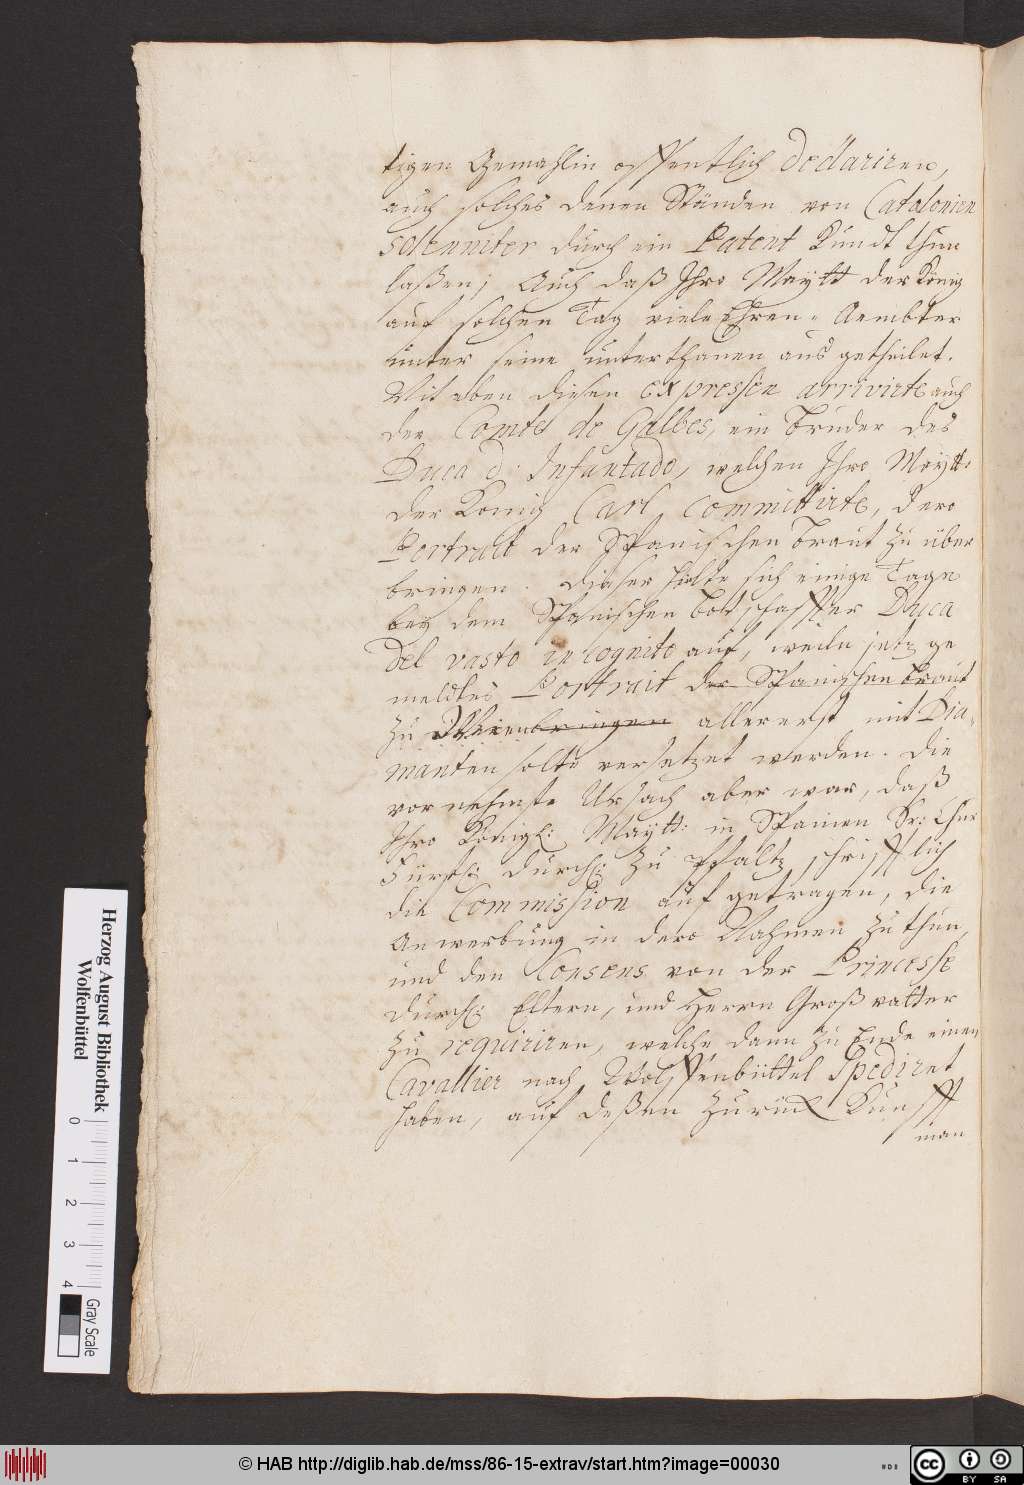 tigen Gemahlin offentlich declariren,
auch solches denen Ständen von Catalonien
solenniter durch ein Patent Kundt thun
laßen; Auch daß Ihro Maytt der König
auf solchen Tag viele Ehren-Aembter
unter seine unterthanen aus getheilet.
Mit eben diesen expressen arrivirte auch
der Comte de Galbes, ein bruder des
Duca d: Infantado, welchen Ihro Maytt:
der König Carl committirte, dero
Portrait der Spanischen braut zu über
bringen. Dieser hielte sich einige Tage
bey dem Spanischen bottschaffter Duca
Del vasto incognito auf, weiln jetz ge
meldtes Portrait der Spanischen braut
zu allererst mit Dia-
manten solte versetzet werden. Die
vornehmste Ursach aber war, daß
Ihro Königl: Maytt: in Spanien Sr: Chur
Fürstl: Durchl: zu Pfaltz schrifftlich
die Commission auf getragen, die
Anwerbung in dero Nahmen zu thun,
und den Consens von der Princesse
Durchl: Eltern, und Herrn Groß vatter
zu requiriren, welche dann zu Ende einen
Cavallier nach Wolffenbüttel Spediret
haben, auf deßen zurück Kunfft
man
Herzog August Bibliothek
Wolfenbüttel
0 1 2 3 4
Gray Scale
© HAB http://diglib.hab.de/mss/86-15-extrav/start.htm?image=00030
CC BY SA